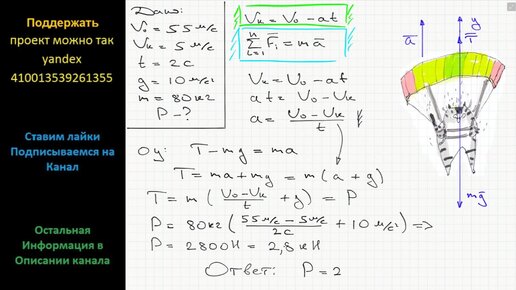 Поддержать
проект можно так
yandex
410013539261355
Ставим лайки
Подписываемся на
Канал
Остальная
Информация в
Описании канала
Дано:
V₀ = 55 м/с
Vк = 5 м/с
t = 2с
g = 10 м/с²
m = 80кг
P - ?
Vк = V₀ - at
∑ F̅ᵢ = ma̅
n
i=1
Vк = V₀ - at
at = V₀ - Vк
a = (V₀ - Vк)/t
oy: T - mg = ma
T = ma + mg = m(a + g)
T = m((V₀ - Vк)/t + g) = P
P = 80кг((55 м/с - 5 м/с)/2с + 10 м/с²) =>
P = 2800Н = 2,8кН
Ответ: P = 2
a̅
y
T̅
mg̅